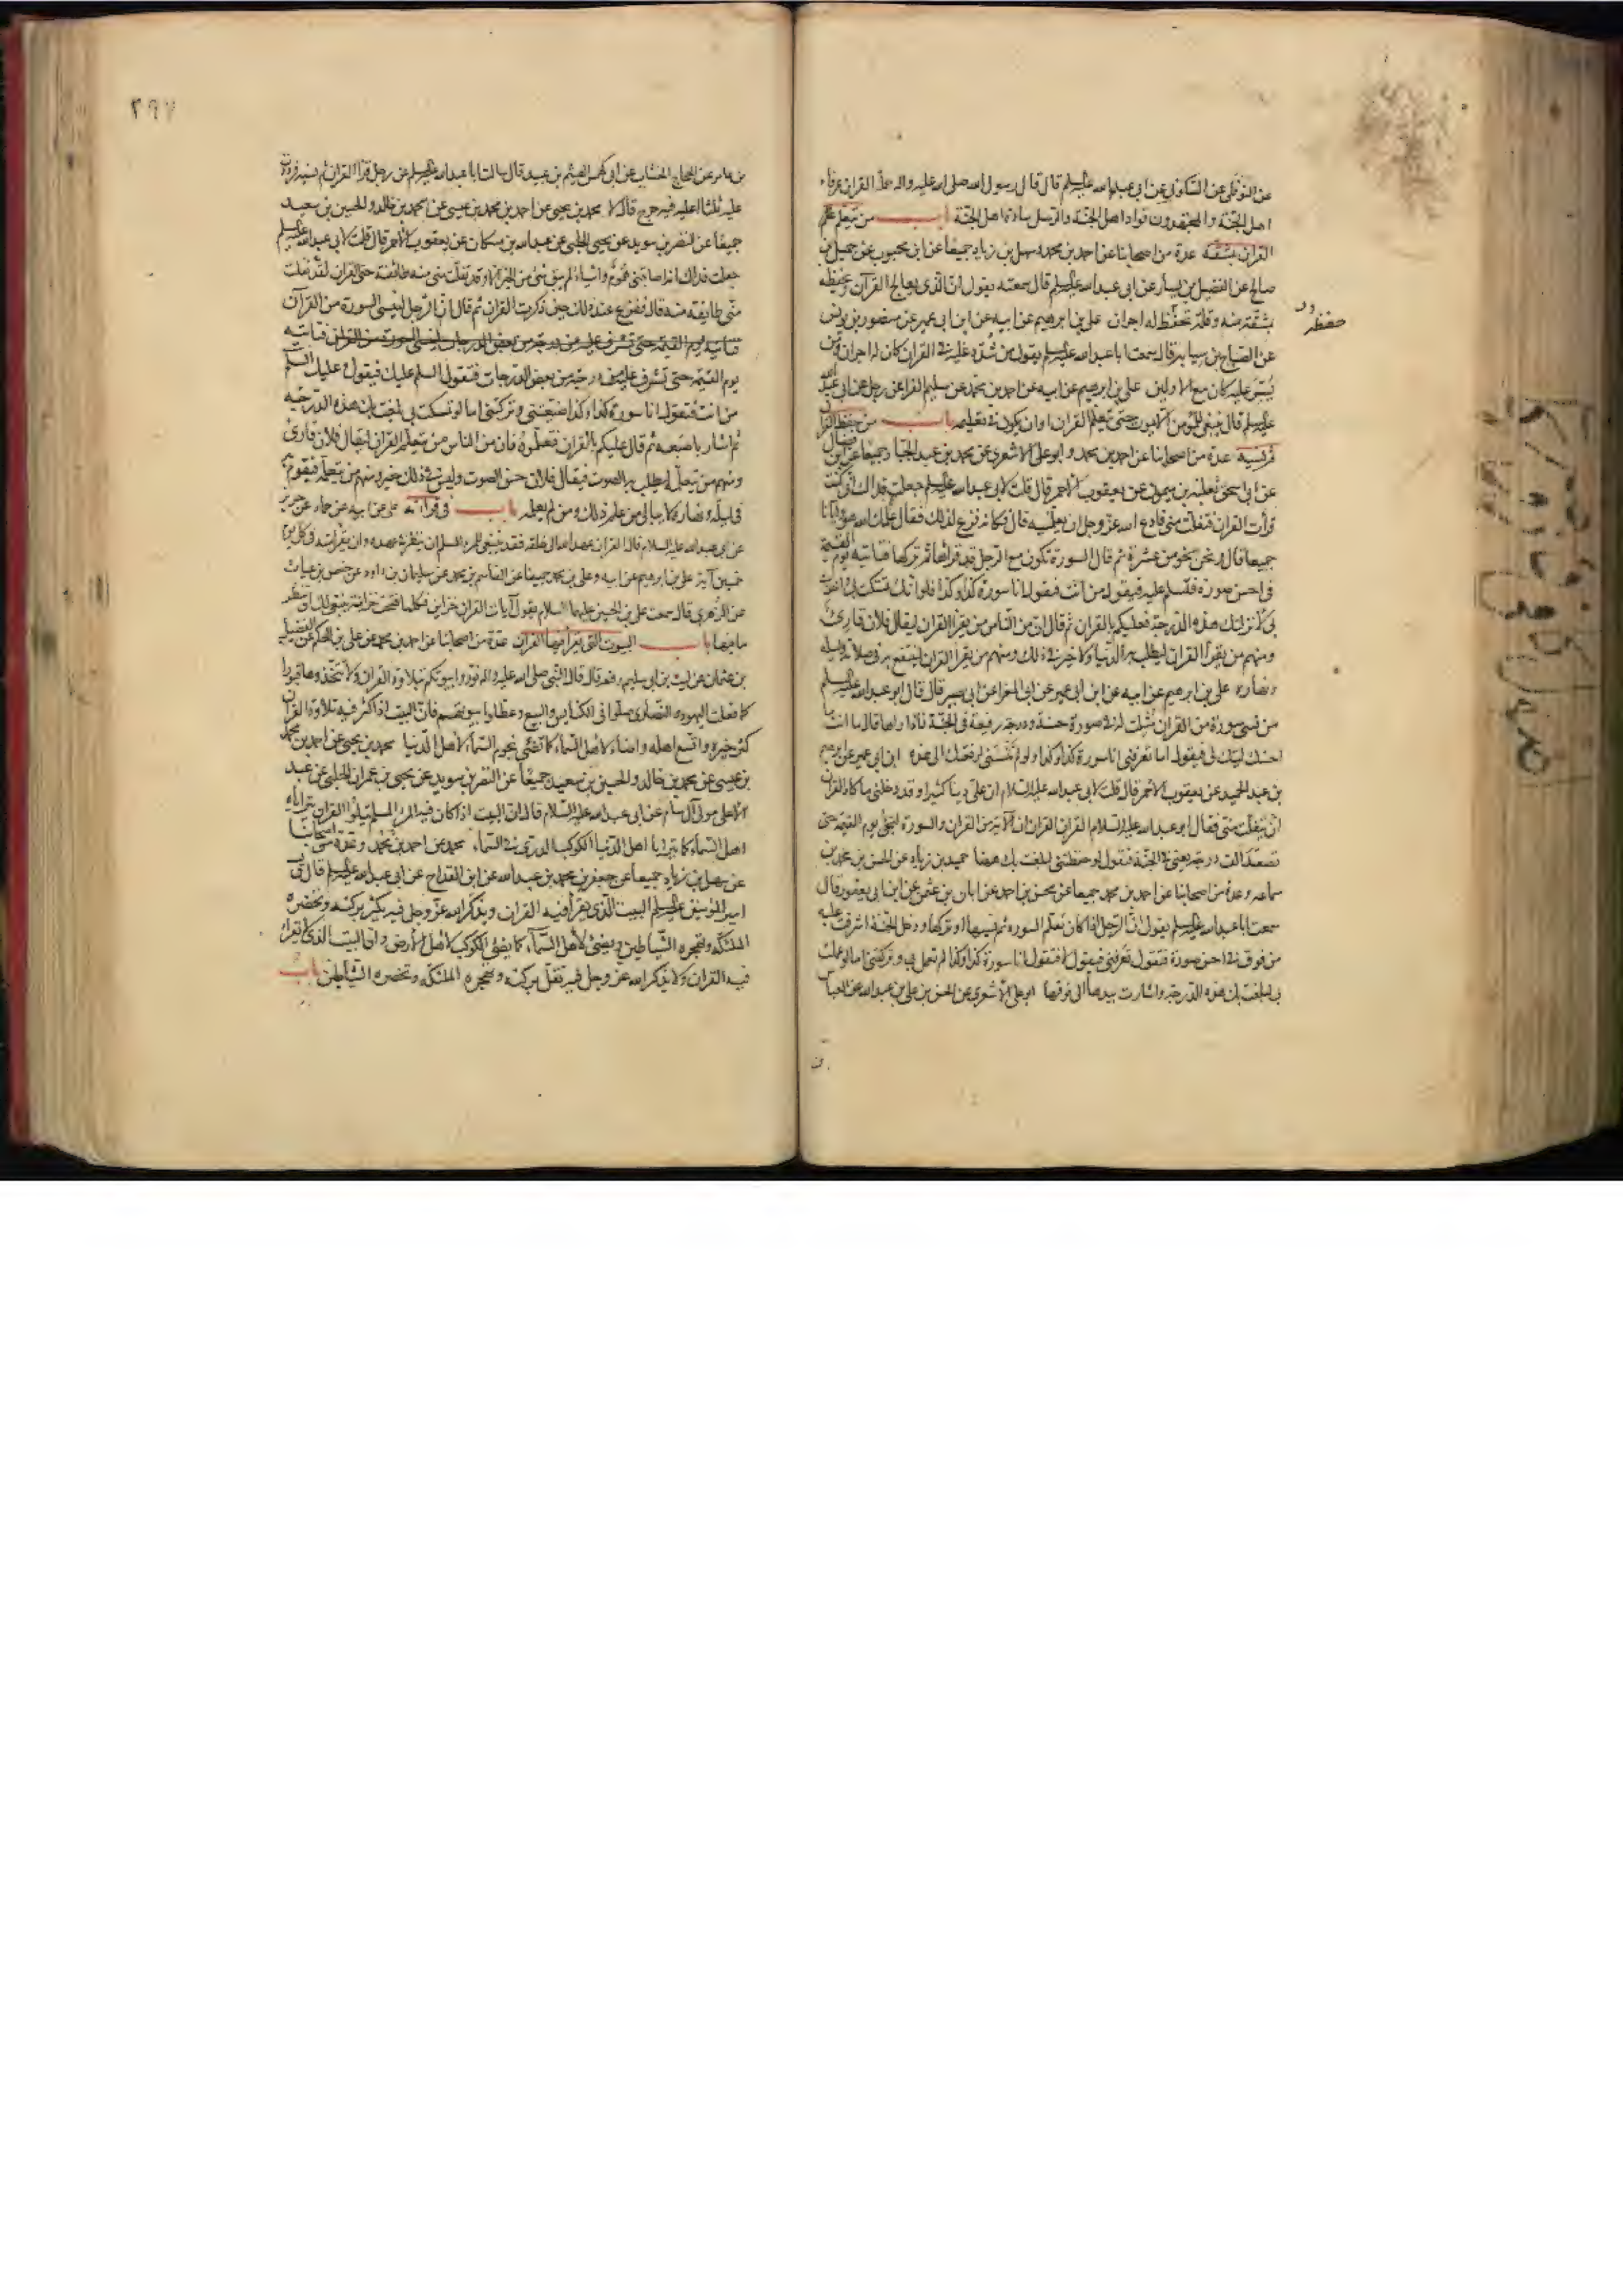 عن النوفلى عن السكونى عن ابى عبدالله عليه السلم قال قال رسول الله صلى الله عليه واله حملة القران عرفاء
اهل الجنة والمجتهدون قواد اهل الجنة والرسل سادة اهل الجنة باب من يتعلم
القران بمشقة عدة من اصحابنا عن احمد بن محمد وسهل بن زياد جميعا عن ابن محبوب عن جميل بن
صالح عن الفضيل بن يسار عن ابى عبدالله عليه السلم قال سمعته يقول ان الذى يعالج القرآن ويحفظه
بمشقة منه وقلة تحفظ له اجران على بن ابرهيم عن ابيه عن ابن ابى عمير عن منصور بن يونس
حفظ
عن الصباح بن سيابه قال سمعت ابا عبدالله عليه السلم يقول من شدد عليه فى القران كان له اجران ومن
يسر عليه كان مع الاولين على بن ابرهيم عن ابيه عن احمد بن محمد عن سليم الفرا عن رجل عن ابى عبدالله
عليه السلم قال ينبغى للمومن ان لا يموت حتى يتعلم القران او ان يكون فى تعليمه باب من حفظ القران
ثم نسيه عدة من اصحابنا عن احمد بن محمد وابو على الاشعرى عن محمد بن عبد الجبار جميعا عن ابن فضال
عن ابى اسحق ثعلبة بن ميمون عن يعقوب الاحمر قال قلت لابى عبدالله عليه السلم جعلت فداك انى كنت
قرأت القران فتفلت منى فادع الله عز وجل ان يعلمنيه قال فكانه فزع لذلك فقال علمك الله هو وايانا
جميعا قال ونحن نحو من عشرة ثم قال السورة تكون مع الرجل قد قراها ثم تركها فتاتيه يوم القيمة
فى احسن صورة فتسلم عليه فيقول من انت فتقول انا سورة كذا وكذا فلو انك تمسكت بى واخذت
بى لانزلتك هذه الدرجة فعليكم بالقران ثم قال ان من الناس من يقرا القران ليقال فلان قارئ
ومنهم من يقرأ القران ليطلب به الدنيا ولا خير فى ذلك ومنهم من يقرأ القران لينتفع به فى صلاته وليله
ونهاره على بن ابرهيم عن ابيه عن ابن ابى عمير عن ابى المغرا عن ابى بصير قال قال ابو عبدالله عليه السلم
من نسى سورة من القران مثلت له فى صورة حسنة ودرجة رفيعة فى الجنة فاذا راها قال ما انت ما
احسنك ليتك لى فيقول اما تعرفنى انا سورة كذا وكذا ولو لم تنسنى لرفعتك الى هذه ابن ابى عمير عن ابرهيم
بن عبد الحميد عن يعقوب الاحمر قال قلت لابى عبدالله عليه السلام ان على دينا كثيرا وقد دخلنى ما كاد القران
ان يتفلت منى فقال ابو عبدالله عليه السلام القران القران ان الآية من القران والسورة لتجئ يوم القيمة حتى
تصعد الف درجة يعنى فى الجنة فتقول لو حفظتنى لبلغت بك ههنا حميد بن زياد عن الحسن بن محمد بن
سماعه وعدة من اصحابنا عن احمد بن محمد جميعا عن محسن بن احمد عن ابان بن عثمن عن ابن ابى يعفور قال
سمعت ابا عبدالله عليه السلم يقول ان الرجل اذا كان تعلم السوره ثم نسيها او تركها ودخل الجنة اشرفت عليه
من فوق فى احسن صورة فتقول تعرفنى فيقول لا فتقول انا سورة كذا وكذا لم تعمل بى وتركتنى اما لو عملت
بى لبلغت بك هذه الدرجة واشارت بيدها الى فوقها ابو على الاشعرى عن الحسن بن على بن عبدالله عن العباس
٢٩٧
بن عامر عن الحجاج الخشاب عن ابى كهمس الهيثم بن عبيد قال سالت ابا عبدالله عليه السلم عن رجل قرأ القران ثم نسيه فرددت
عليه ثلثا اعليه فيه حرج قال لا محمد بن يحيى عن احمد بن محمد بن عيسى عن محمد بن خالد والحسين بن سعيد
جميعا عن النضر بن سويد عن يحيى الحلبى عن عبدالله بن مسكان عن يعقوب الاحمر قال قلت لابى عبدالله عليه السلم
جعلت فداك انه اصابتنى هموم واشياء لم يبق شئ من الخير الا وقد تفلت منى منه طائفة حتى القران لقد تفلت
منى طايفة منه قال ففزع عند ذلك حين ذكرت القران ثم قال ان الرجل لينسى السورة من القرآن
فتاتيه يوم القيمة حتى تشرف عليه من درجة من بعض الدرجات لينسى السورة من القران فتاتيه
يوم القيمة حتى تشرف عليه من درجة من بعض الدرجات فتقول السلم عليك فيقول وعليك السلم
من انت فتقول انا سورة كذا وكذا ضيعتنى وتركتنى اما لو تمسكت بى لبلغت بك هذه الدرجة
ثم اشار باصبعه ثم قال عليكم بالقران فتعلموه فان من الناس من يتعلم القران ليقال فلان قارئ
ومنهم من يتعلمه ليطلب به الصوت فيقال فلان حسن الصوت وليس فى ذلك خير ومنهم من يتعلمه فيقوم به
فى ليله ونهاره لا يبالى من علم ذلك ومن لم يعلمه باب فى قرائته على عن ابيه عن حماد عن حريز
عن ابى عبدالله عليه السلام قال القران عهد الله الى خلقه فقد ينبغى للمرء المسلم ان ينظر فى عهده وان يقرا منه فى كل يوم
خمسين آية على بن ابرهيم عن ابيه وعلى بن محمد جميعا عن القاسم بن محمد عن سليمان بن داود عن حفص بن غياث
عن الزهرى قال سمعت على بن الحسين عليهما السلام يقول آيات القران خزاين فكلما فتحت خزانة ينبغى لك ان تنظر
ما فيها باب البيوت التى يقرأ فيها القران عدة من اصحابنا عن احمد بن محمد عن على بن الحكم عن الفضيل
بن عثمان عن ليث بن ابى سليم رفعه قال قال النبى صلى الله عليه واله نوروا بيوتكم بتلاوة القران ولا تتخذوها قبورا
كما فعلت اليهود والنصارى صلوا فى الكنايس والبيع وعطلوا بيوتهم فان البيت اذا كثر فيه تلاوة القران
كثر خيره واتسع اهله واضاء لاهل السماء كما تضئ نجوم السماء لاهل الدنيا محمد بن يحيى عن احمد بن محمد
بن عيسى عن محمد بن خالد والحسين بن سعيد جميعا عن النضر بن سويد عن يحيى بن عمران الحلبى عن عبد
الاعلى مولى آل سام عن ابى عبدالله عليه السلام قال ان البيت اذا كان فيه المرء المسلم يتلوا القران يتراياه
اهل السماء كما يترايا اهل الدنيا الكوكب الدرى فى السماء محمد عن احمد بن محمد وعدة من اصحابنا
عن سهل بن زياد جميعا عن جعفر بن محمد بن عبدالله عن ابن القداح عن ابى عبدالله عليه السلم قال قال
امير المؤمنين عليه السلم البيت الذى يقرأ فيه القران ويذكر الله عز وجل فيه يكثر بركته وتحضره
الملئكة وتهجره الشياطين ويضئ لاهل السماء كما يضئ الكوكب لاهل الارض وان البيت الذى لا يقرأ
فيه القران ولا يذكر الله عز وجل فيه تقل بركته وتهجره الملئكة وتحضره الشياطين باب